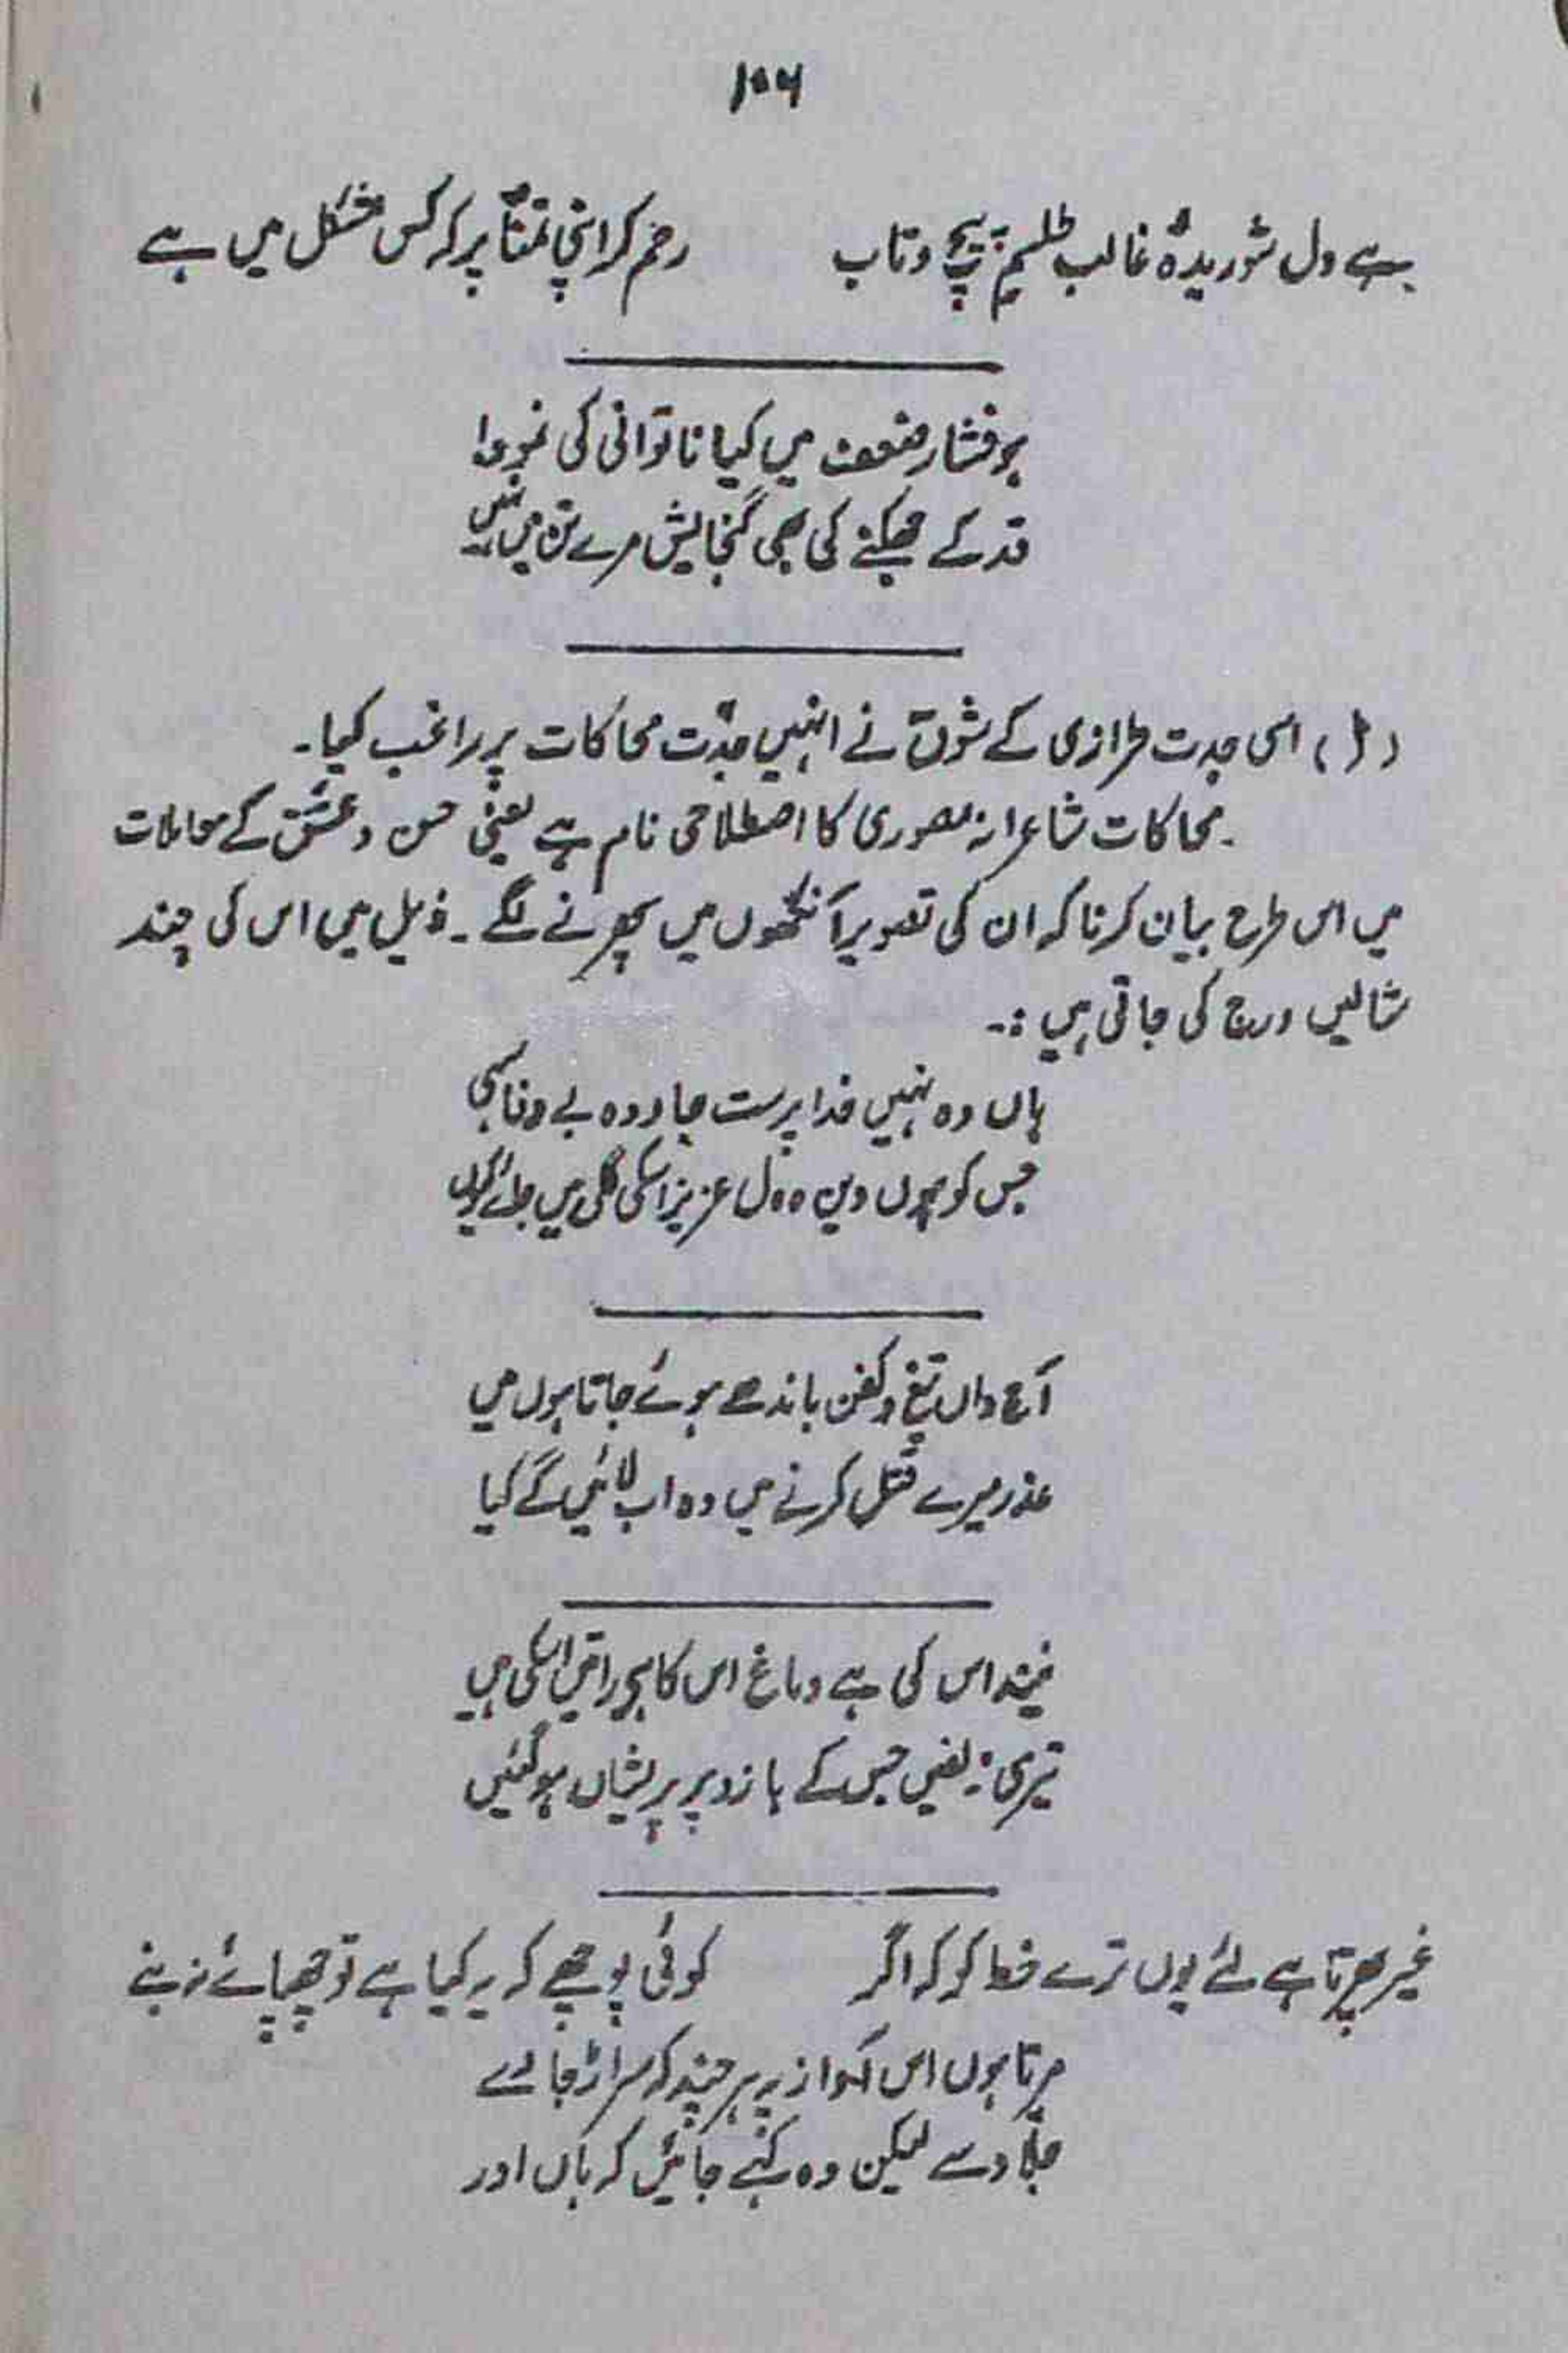 ۱۰۶
ہے دل شوریدۂ غالب طلسم پیچ و تاب رحم کر اپنی تمنّا پر کہ کس مشکل میں ہے
ہو فشار ضعف میں کیا ناتوانی کی نمود
قد کے جھکنے کی بھی گنجایش مرے تن میں نہیں
اسی جدت طرازی کے شوق نے انہیں جدّت محاکات پر راغب کیا۔
محاکات شاعرانہ مصوری کا اصطلاحی نام ہے یعنی حسن و عشق کے معاملات
میں اس طرح بیان کرنا کہ ان کی تصویر آنکھوں میں پھرنے لگے۔ ذیل میں اس کی چند
مثالیں درج کی جاتی ہیں :۔
ہاں وہ نہیں خدا پرست جاؤ وہ بے وفا سہی
جس کو ہوں دین و دل عزیز اسکی گلی میں جائے کیوں
آج واں تیغ و کفن باندھے ہوئے جاتا ہوں میں
عذر میرے قتل کرنے میں وہ اب لائیں گے کیا
نیند اس کی ہے دماغ اس کا ہے راتیں اسکی ہیں
تیری زلفیں جس کے بازو پر پریشاں ہوگئیں
غیر پھرتا ہے لئے یوں ترے خط کو کہ اگر کوئی پوچھے کہ یہ کیا ہے تو چھپائے نہ بنے
مرتا ہوں اس آواز پہ ہر چند کہ سر اڑ جائے
جلّاد سے لیکن وہ کہے جائیں کہ ہاں اور